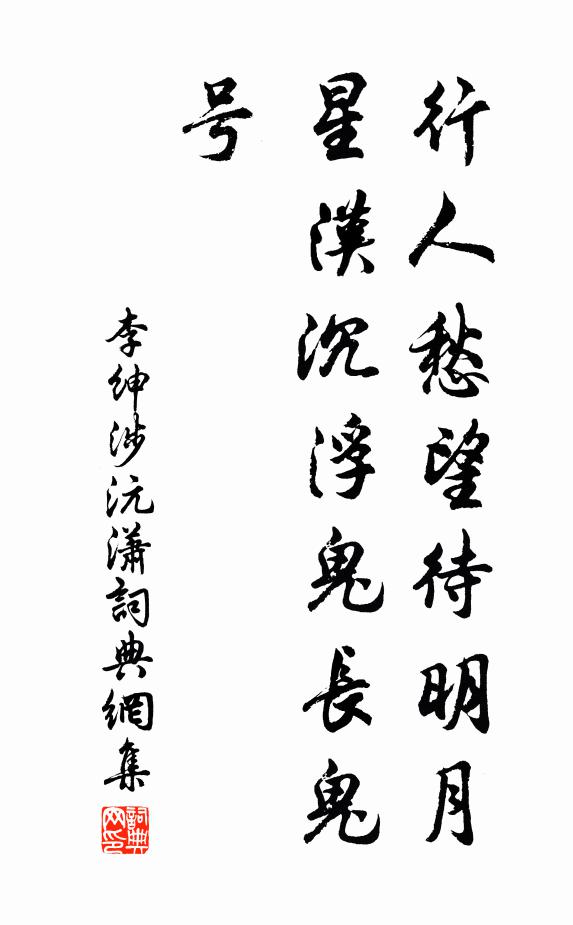 行人愁望待明月
星漢沉浮鬼長鬼
号
李紳涉沅瀟詞典網集
詞典
网印